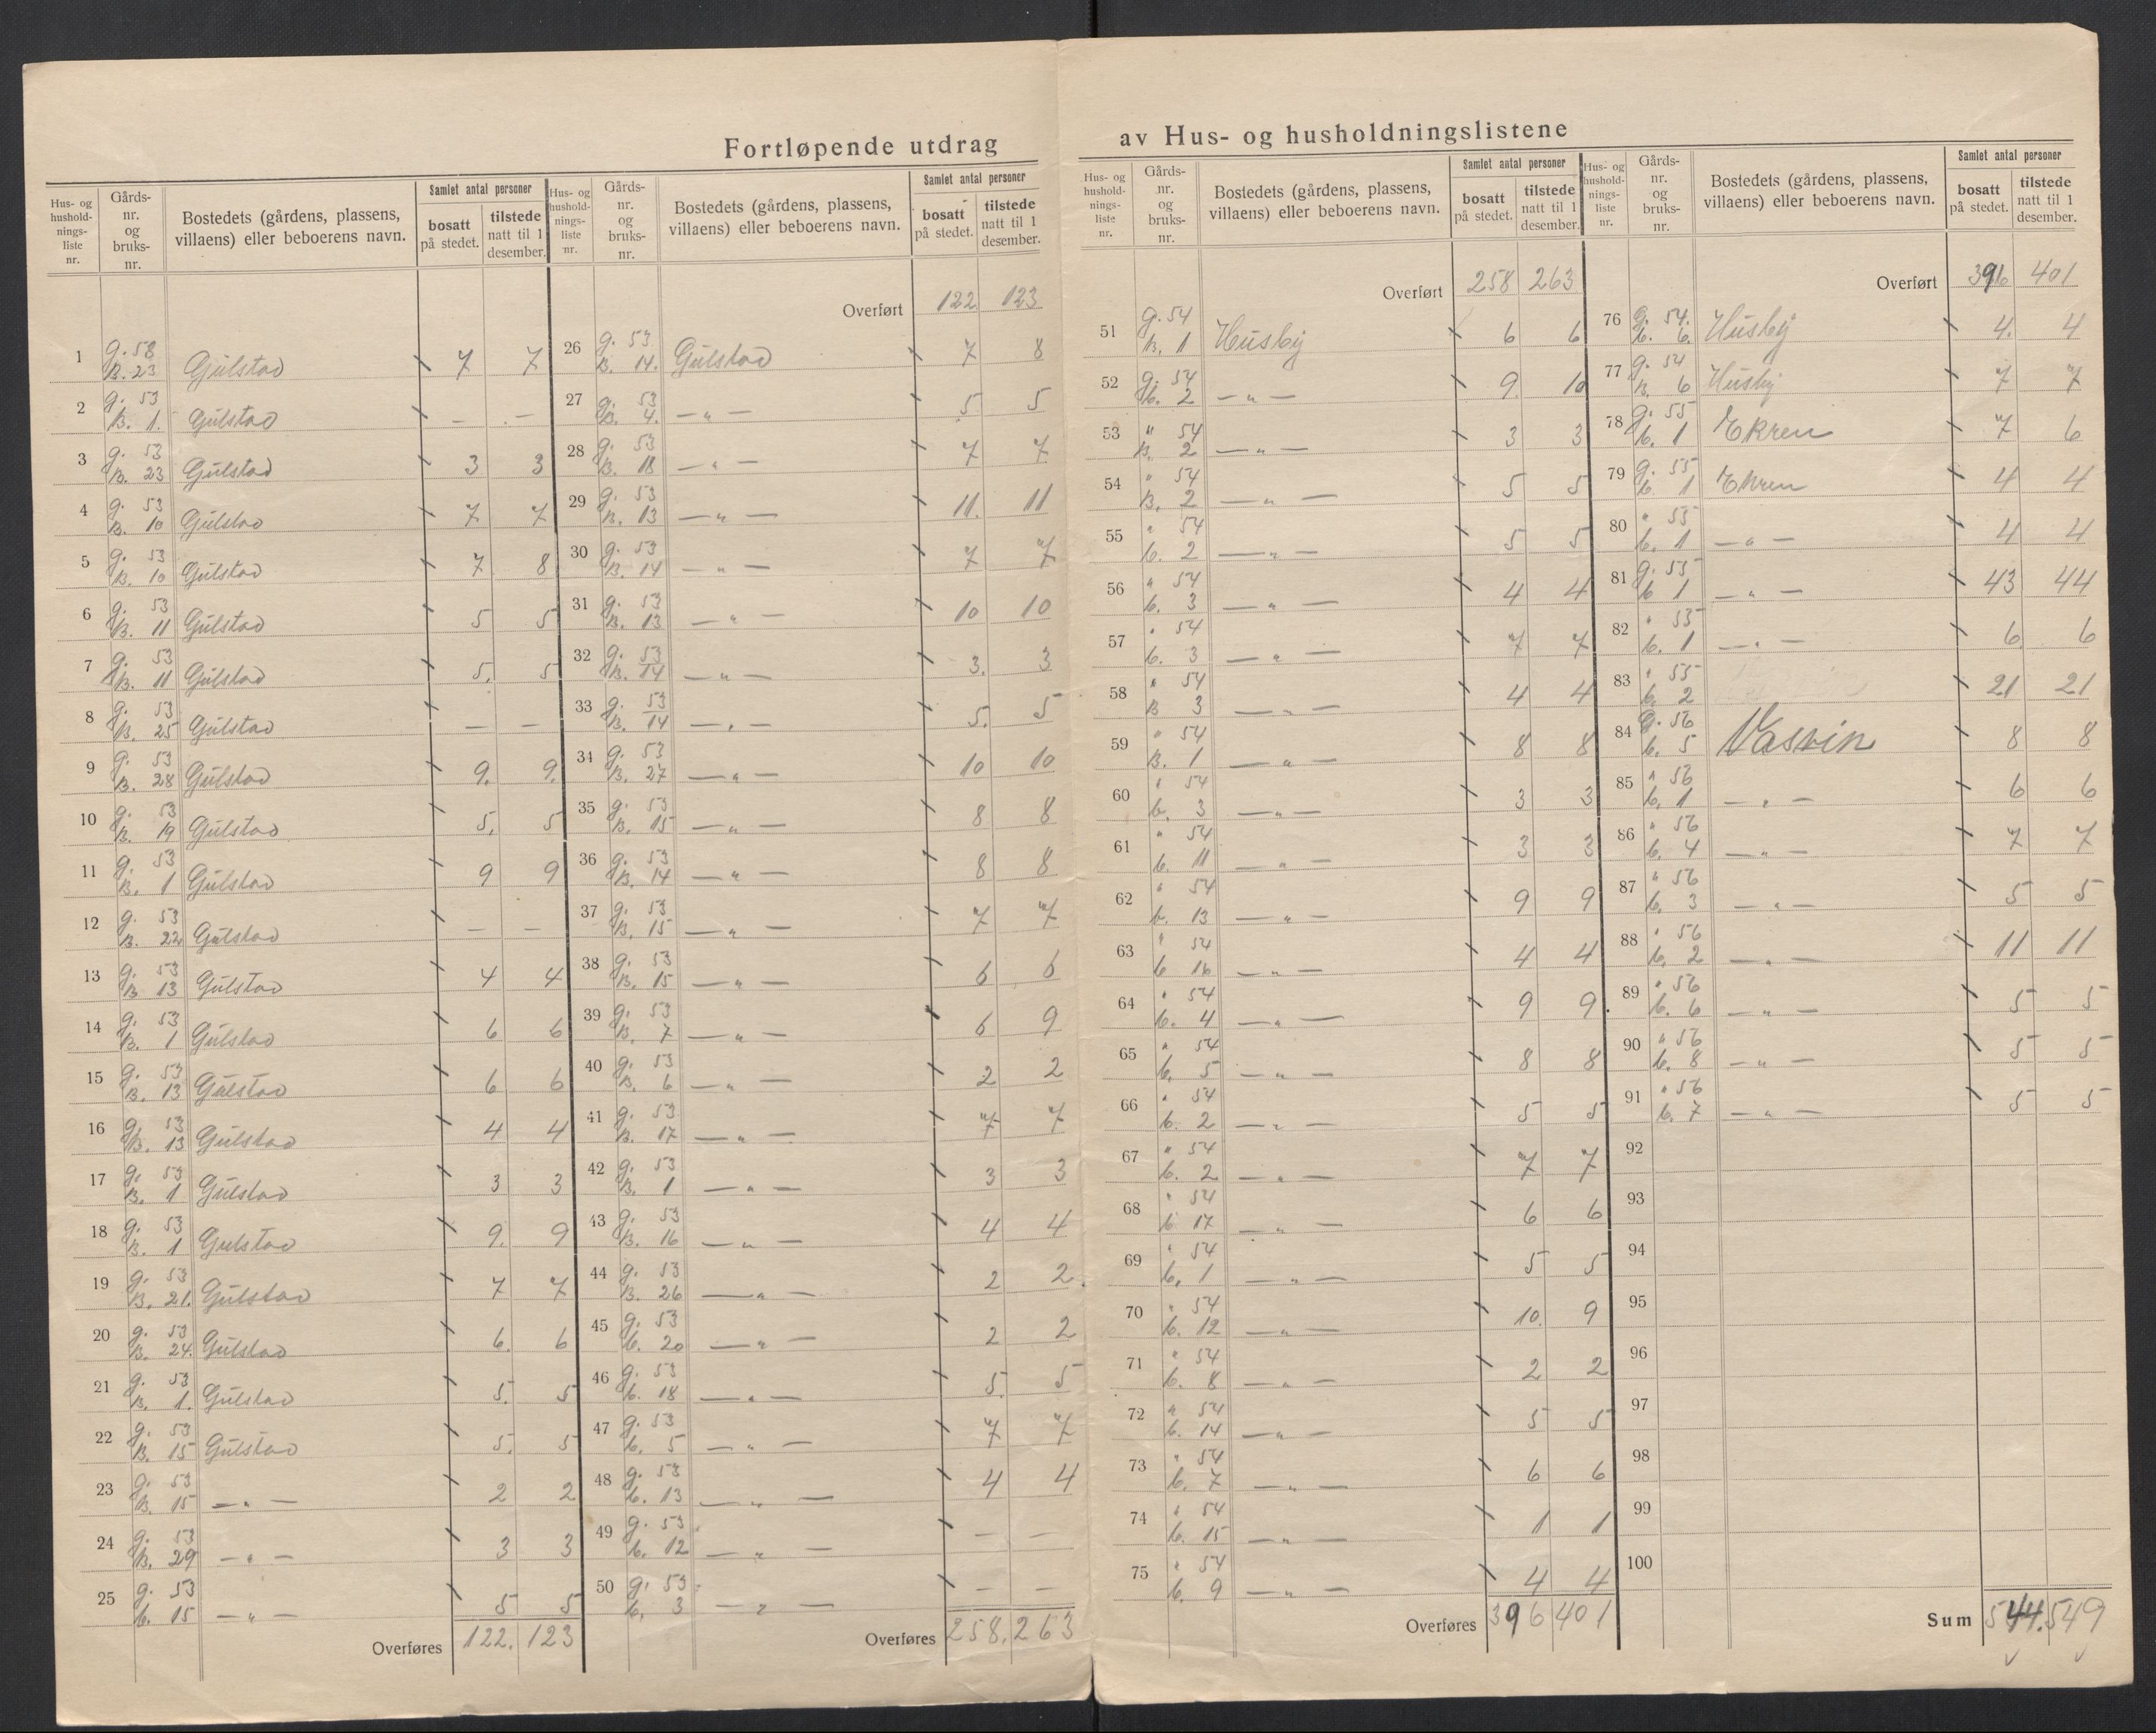 Fortløpende utdrag av Hus- og husholdningslistene
Hus- og hushold- nings- liste nr.
Gårds- nr. og bruks- nr.
Bostedets (gårdens, plassens, villaens) eller beboerens navn.
Samlet antal personer
bosatt på stedet.
tilstede natt til 1 desember.
1 g. 58 B. 23 Gülstad 7 7
2 g. 53 B. 1. Gülstad - -
3 g. 53 B. 23 Gülstad 3 3
4 g. 53 B. 10 Gülstad 7 7
5 g. 53 B. 10 Gülstad 7 8
6 g. 53 B. 11 Gülstad 5 5
7 g. 53 B. 11 Gülstad 5. 5
8 g. 53 B. 25 Gülstad — —
9 g. 53 B. 28 Gülstad 9. 9.
10 g. 53 B. 19 Gülstad 5. 5
11 g. 53 B. 1 Gülstad 9 9
12 g. 53 B. 22 Gülstad — —
13 g. 53 B 13 Gülstad 4 4
14 g. 53 B. 1 Gülstad 6 6
15 g. 53 B. 13 Gülstad 6 6
16 g. 53 B. 13 Gülstad 4 4
17 g. 53 B. 1 Gülstad 3 3
18 g. 53 B. 1 Gulstad 9. 9
19 g. 53 B. 21. Gülstad 7 7
20 g. 53 B. 24. Gülstad 6. 6
21 g. 53 B. 1. Gülstad 5. 5
22 g. 53 B. 15 Gülstad 5. 5
23 g. 53 B. 15 — " — 2 2
24 g. 53 B. 29 — " — 3 3
25 g. 53 b. 15 — " — 5 5
Overføres 122. 123
Hus- og hushold- nings- liste nr.
Gårds- nr. og bruks- nr.
Bostedets (gårdens, plassens, villaens) eller beboerens navn.
Samlet antal personer
bosatt på stedet.
tilstede natt til 1 desember.
Overført 122 123
26 g. 53 B. 14. Gülstad 7 8
27 g. 53 B. 4. — " — 5 5
28 g. 53 B. 18 — " — 7 7
29 g. 53 B. 13 — " — 11. 11
30 g. 53 B. 14 — " — 7 7
31 g. 53 B. 13 — " — 10 10
32 g. 53 B. 14 — " — 3. 3
33 g. 53 B. 14 — " — 5. 5
34 g. 53 B. 27 — " — 10 10
35 g. 53 B. 15 — " — 8 8
36 g. 53 B. 14 — " — 8 8
37 g. 53 B. 15 — " — 7 7
38 g. 53 B. 15 — " — 6 6
39 g. 53 B. 7 — " — 6 9
40 g. 53 B. 6 — " — 2 2
41 g. 53 B. 17 — " — 7 7
42 g. 53 B. 1 — " — 3 3
43 g. 53 B. 16 — " — 4 4
44 g. 53 B. 26 — " — 2 2.
45 g. 53 b. 20 — " — 2 2
46 g. 53 b. 18 — " — 5. 5
47 g. 53 b. 5 — " — 7 7
48 g. 53 b. 13 — " — 4 4
49 g. 53 b. 12 — " — — —
50 g. 53 b. 3 — " — — —
Overføres 258. 263
Hus- og hushold- nings- liste nr.
Gårds- nr. og bruks- nr.
Bostedets (gårdens, plassens, villaens) eller beboerens navn.
Samlet antal personer
bosatt på stedet.
tilstede natt til 1 desember.
Overført 258 263
51 g. 54 B. 1 Husby 6 6
52 g. 54 b. 2 — " — 9. 10
53 " 54 B. 2 — " — 3 3
54 " 54 B. 2 — " — 5 5
55 " 54 b. 2 — " — 5 5
56 " 54 b. 3 — " — 4 4
57 " 54 b. 3 — " — 7 7
58 " 54 B 3 — " — 4 4
59 " 54 B. 1 — " — 8 8
60 " 54 b. 3 — " — 3 3
61 " 54 b. 11 — " — 3 3
62 " 54 b. 13 — " — 9 9
63 " 54 b 16 — " — 4 4
64 " 54 b. 4 — " — 9 9
65 " 54 b. 5 — " — 8 8
66 " 54 b. 2 — " — 5 5
67 " 54 b. 2 — " — 7 7
68 " 54 b 17 — " — 6 6
69 " 54 b. 1 — " — 5 5
70 " 54 b. 12 — " — 10. 9
71 " 54 b. 8 — " — 2 2
72 " 54 b. 14 — " — 5 5
73 " 54 b. 7 — " — 6 6
74 " 54 b. 15 — " — 1 1
75 " 54 b. 9 — " — 4 4
Overføres 396 401
Hus- og hushold- nings- liste nr.
Gårds- nr. og bruks- nr.
Bostedets (gårdens, plassens, villaens) eller beboerens navn.
Samlet antal personer
bosatt på stedet.
tilstede natt til 1 desember.
Overført 396 401
76 g. 54. b. 6. Husby 4. 4
77 g. 54 B. 6 Husby 7 7
78 g. 55 b. 1 Ekren 7 6
79 g. 55 b. 1 Ekren 4 4
80 " 55 b. 1 — " — 4 4
81 g. 55 b 1 — " — 43 44
82 " 55 b. 1 — " — 6 6
83 " 55 b. 2 21 21
84 g. 56 b. 5 Vasvin 8 8
85 " 56 b. 1 — " — 6 6
86 " 56 b. 4 — " — 7 7
87 " 56 b. 3 — " — 5 5
88 " 56 b. 2 — " — 11 11
89 " 56 b. 6 — " — 5 5
90 " 56 b. 8 — " — 5 5
91 " 56 b. 7 — " — 5 5
92
93
94
95
96
97
98
99
100
Sum 544. 549